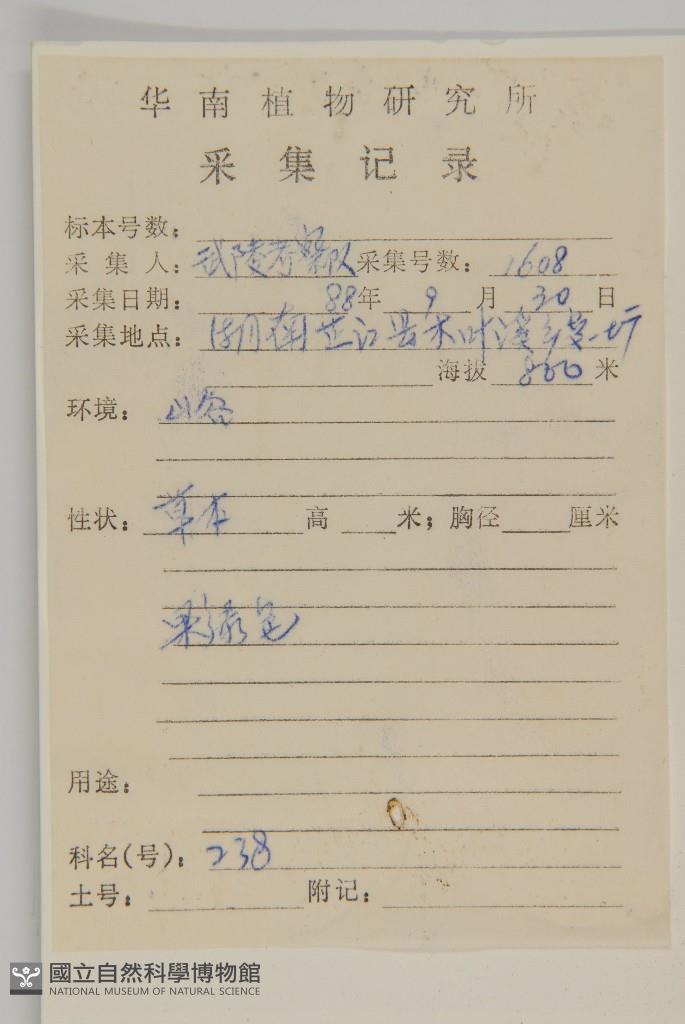 华南植物研究所
采集记录
标本号数：
采集人：武陵考察队 采集号数：1608
采集日期：88年 9月 30日
采集地点：湖南芷江县木叶溪乡
海拔 860 米
环境：山谷
性状：草本 高 米；胸径 厘米
果绿色
用途：
科名(号)：238
土号： 附记：
國立自然科學博物館
NATIONAL MUSEUM OF NATURAL SCIENCE